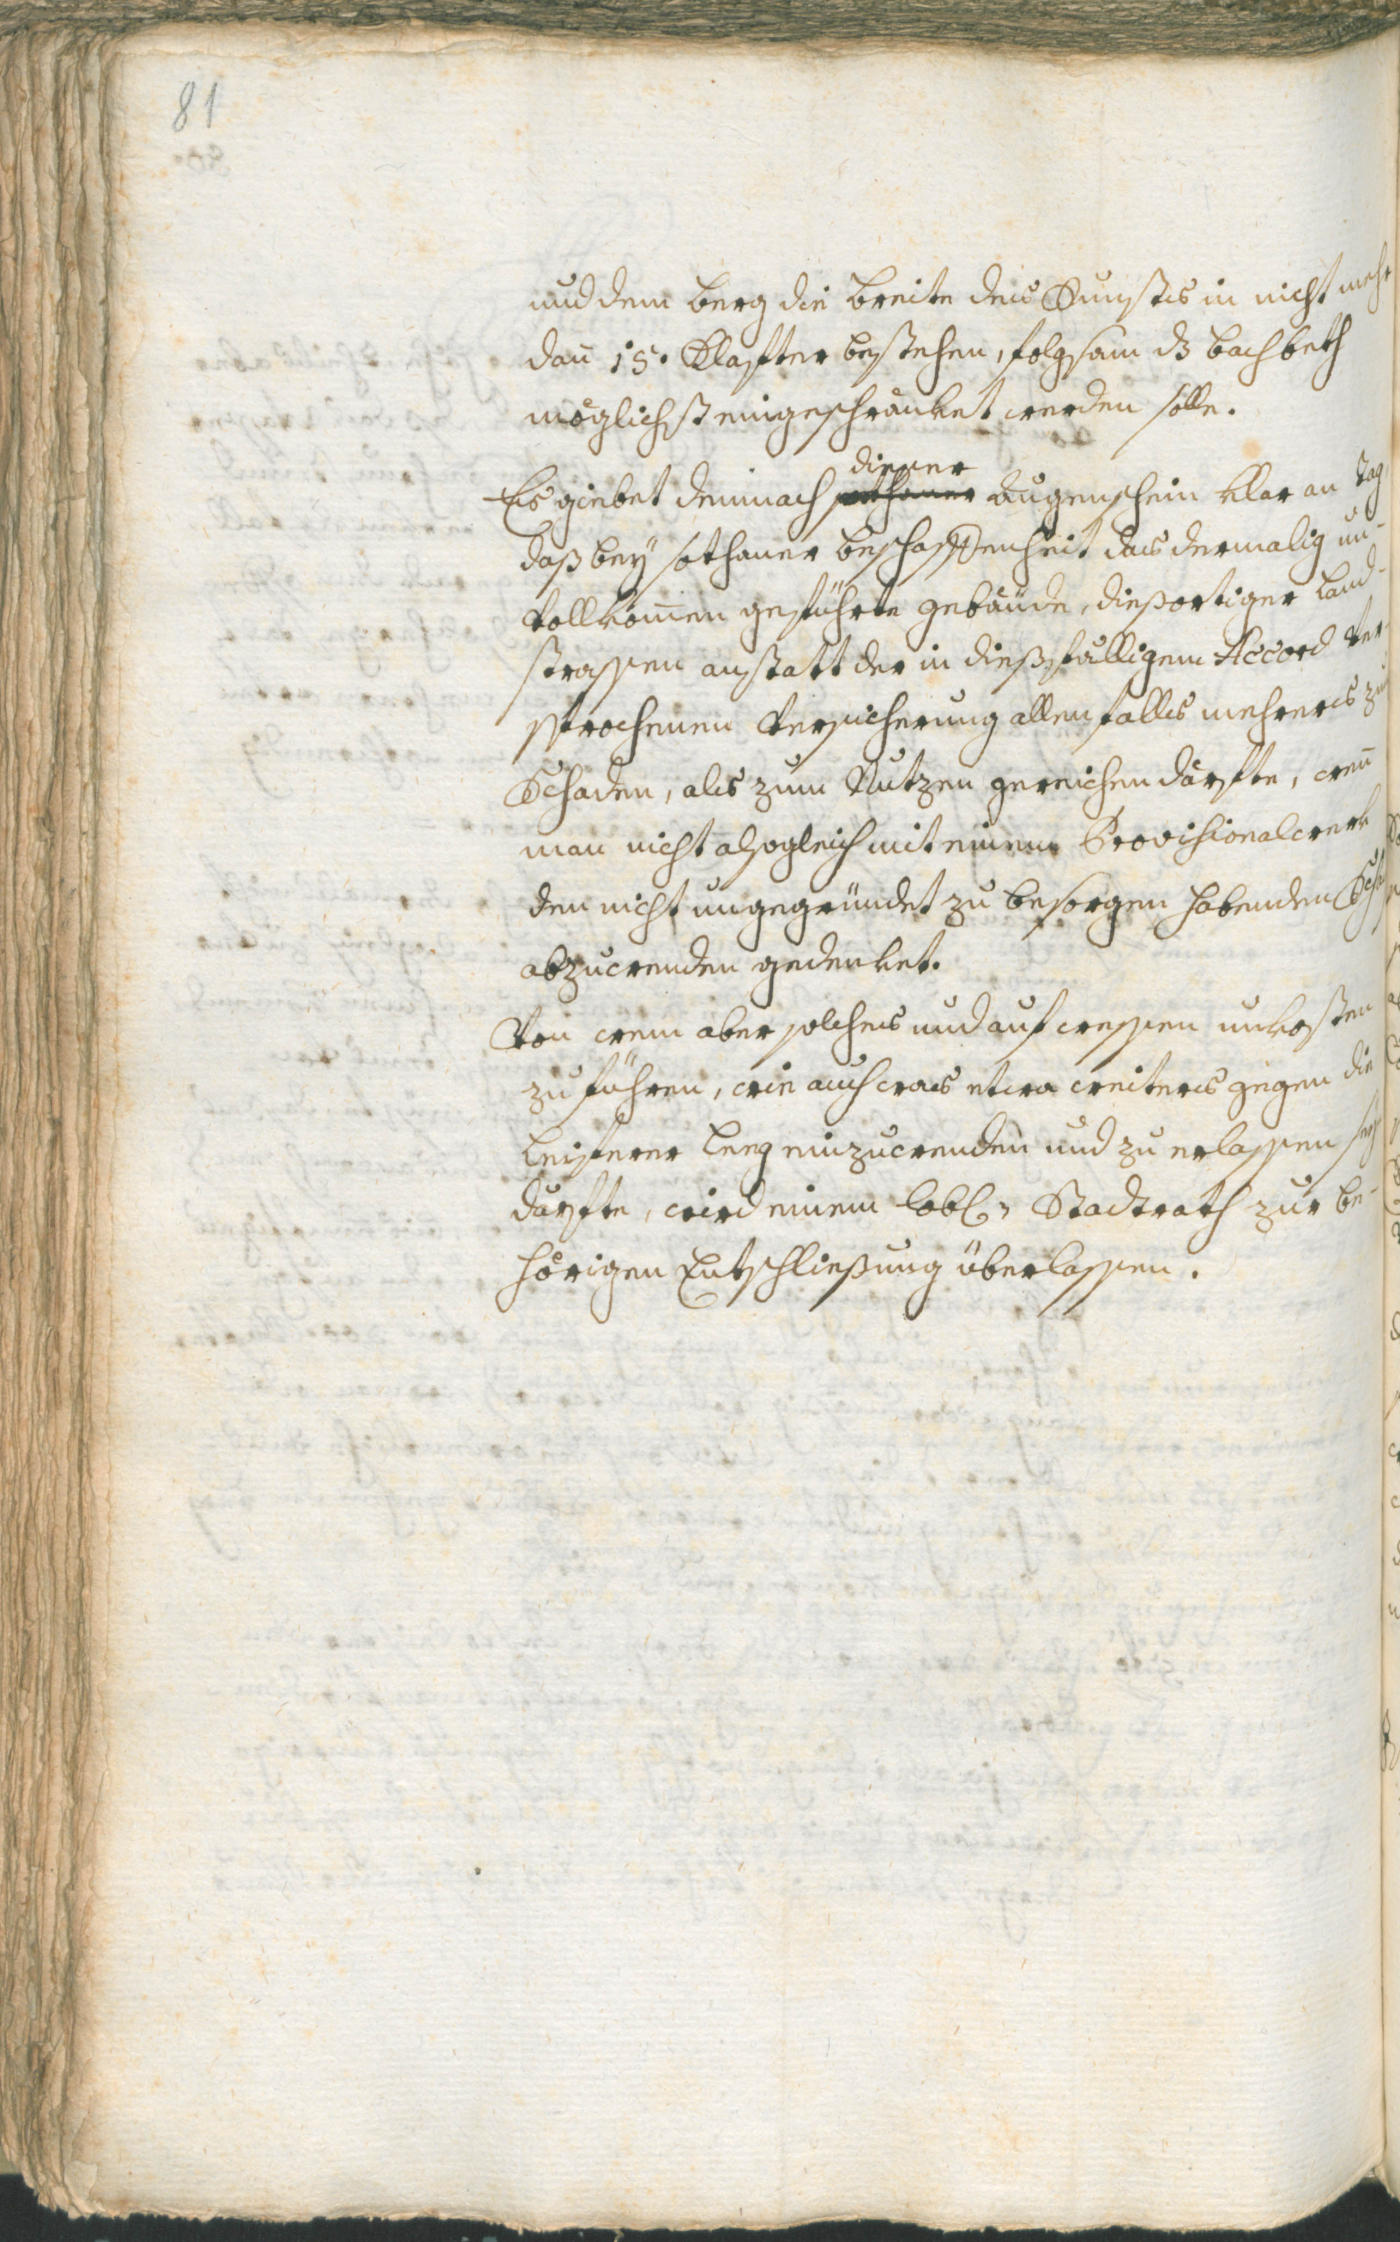 81
und dem berg die breite des Runstes in nicht mehr
dan̄ 15. Klafter bestehen, folgsam dz bachbeth
möglichst eingeschränket werden solle.
dieser
Es giebet demnach sothaner Augenschein klar an Tag
daß bey sothaner beschaffenheit das dermalig un-
vollkom̄en geführte gebäude, dießortiger Land-
strassen anstatt der in dießfälligem Accord ver-
sprochenen Versicherung allenfalls mehreres zu
Schaden, als zum Nutzen gereichen därfte, wen̄
man nicht alsogleich mit einem Provisionalwerk
den nicht ungegründet zu besorgen habenden
abzuwenden gedenket.
Von wem aber solches und auf wessen unkosten
zu führen, wie auch was etwa weiters gegen die
Leiferer Leeg einzuwenden und zu erlassen seyn
därfte, wird einem löbl: Stadtrath zur be-
hörigen Entschließung überlassen.